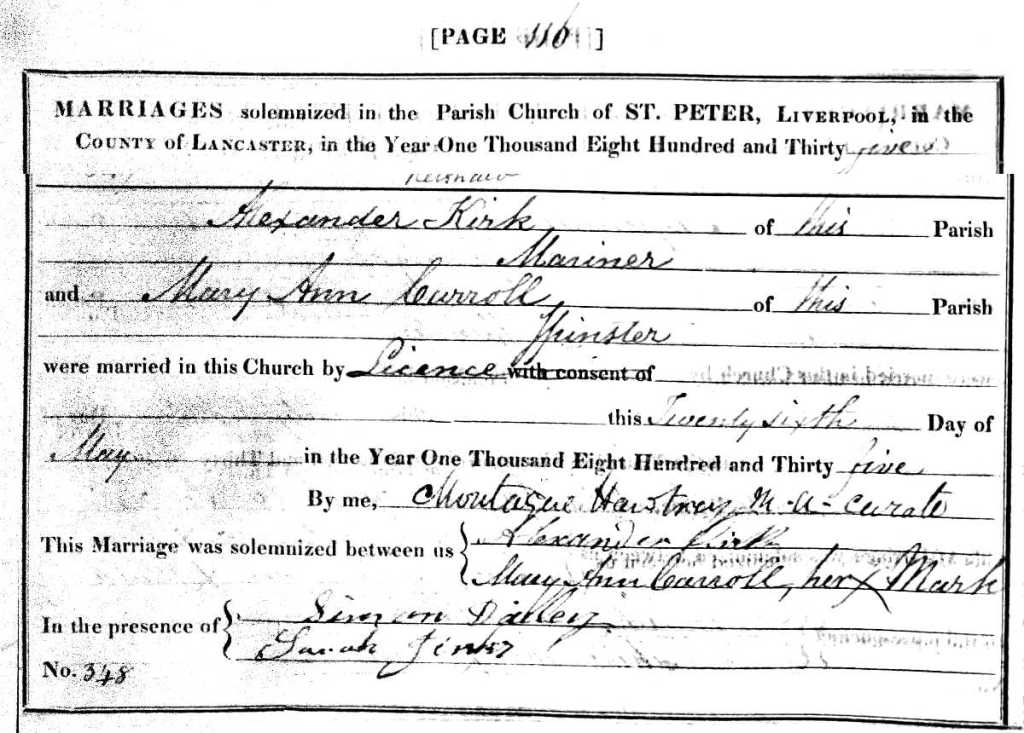 [PAGE 116 ]
MARRIAGES solemnized in the Parish Church of ST. PETER, LIVERPOOL, in the
COUNTY of LANCASTER, in the Year One Thousand Eight Hundred and Thirty five
Alexander Kirk of this Parish
Mariner
and Mary Ann Carroll of this Parish
Spinster
were married in this Church by Licence with consent of
this Twenty sixth Day of
May in the Year One Thousand Eight Hundred and Thirty five
By me, Montague Hawtrey M-A- Curate
This Marriage was solemnized between us { Alexander Kirk
Mary Ann Carroll, her X Mark
In the presence of { Simon
Sarah
No. 348